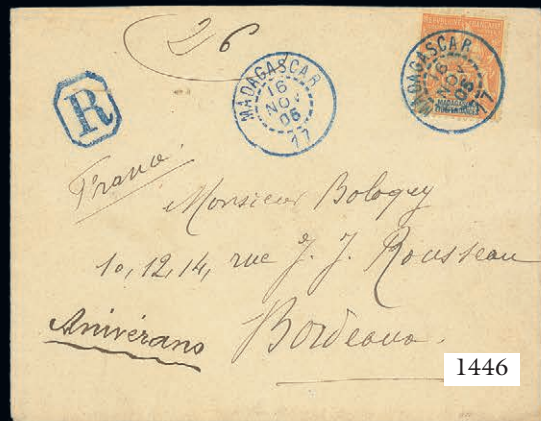 26
MADAGASCAR
16
NOV
05
17
MADAGASCAR
16
NOV
05
17
R
France
Monsieur Bologuy
10, 12, 14, rue J. J. Rousseau
Anivérano
Bordeaux.
1446